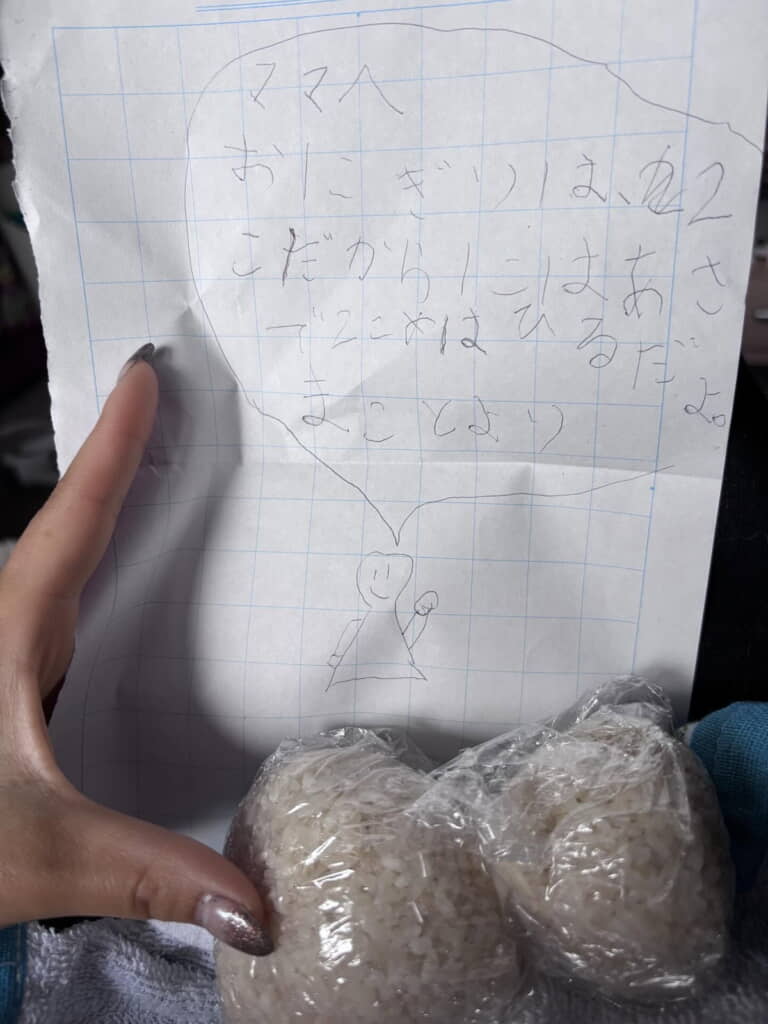 ママへ
おにぎりは、2
こだから1こはあさ
で2こめはひるだよ。
まことより